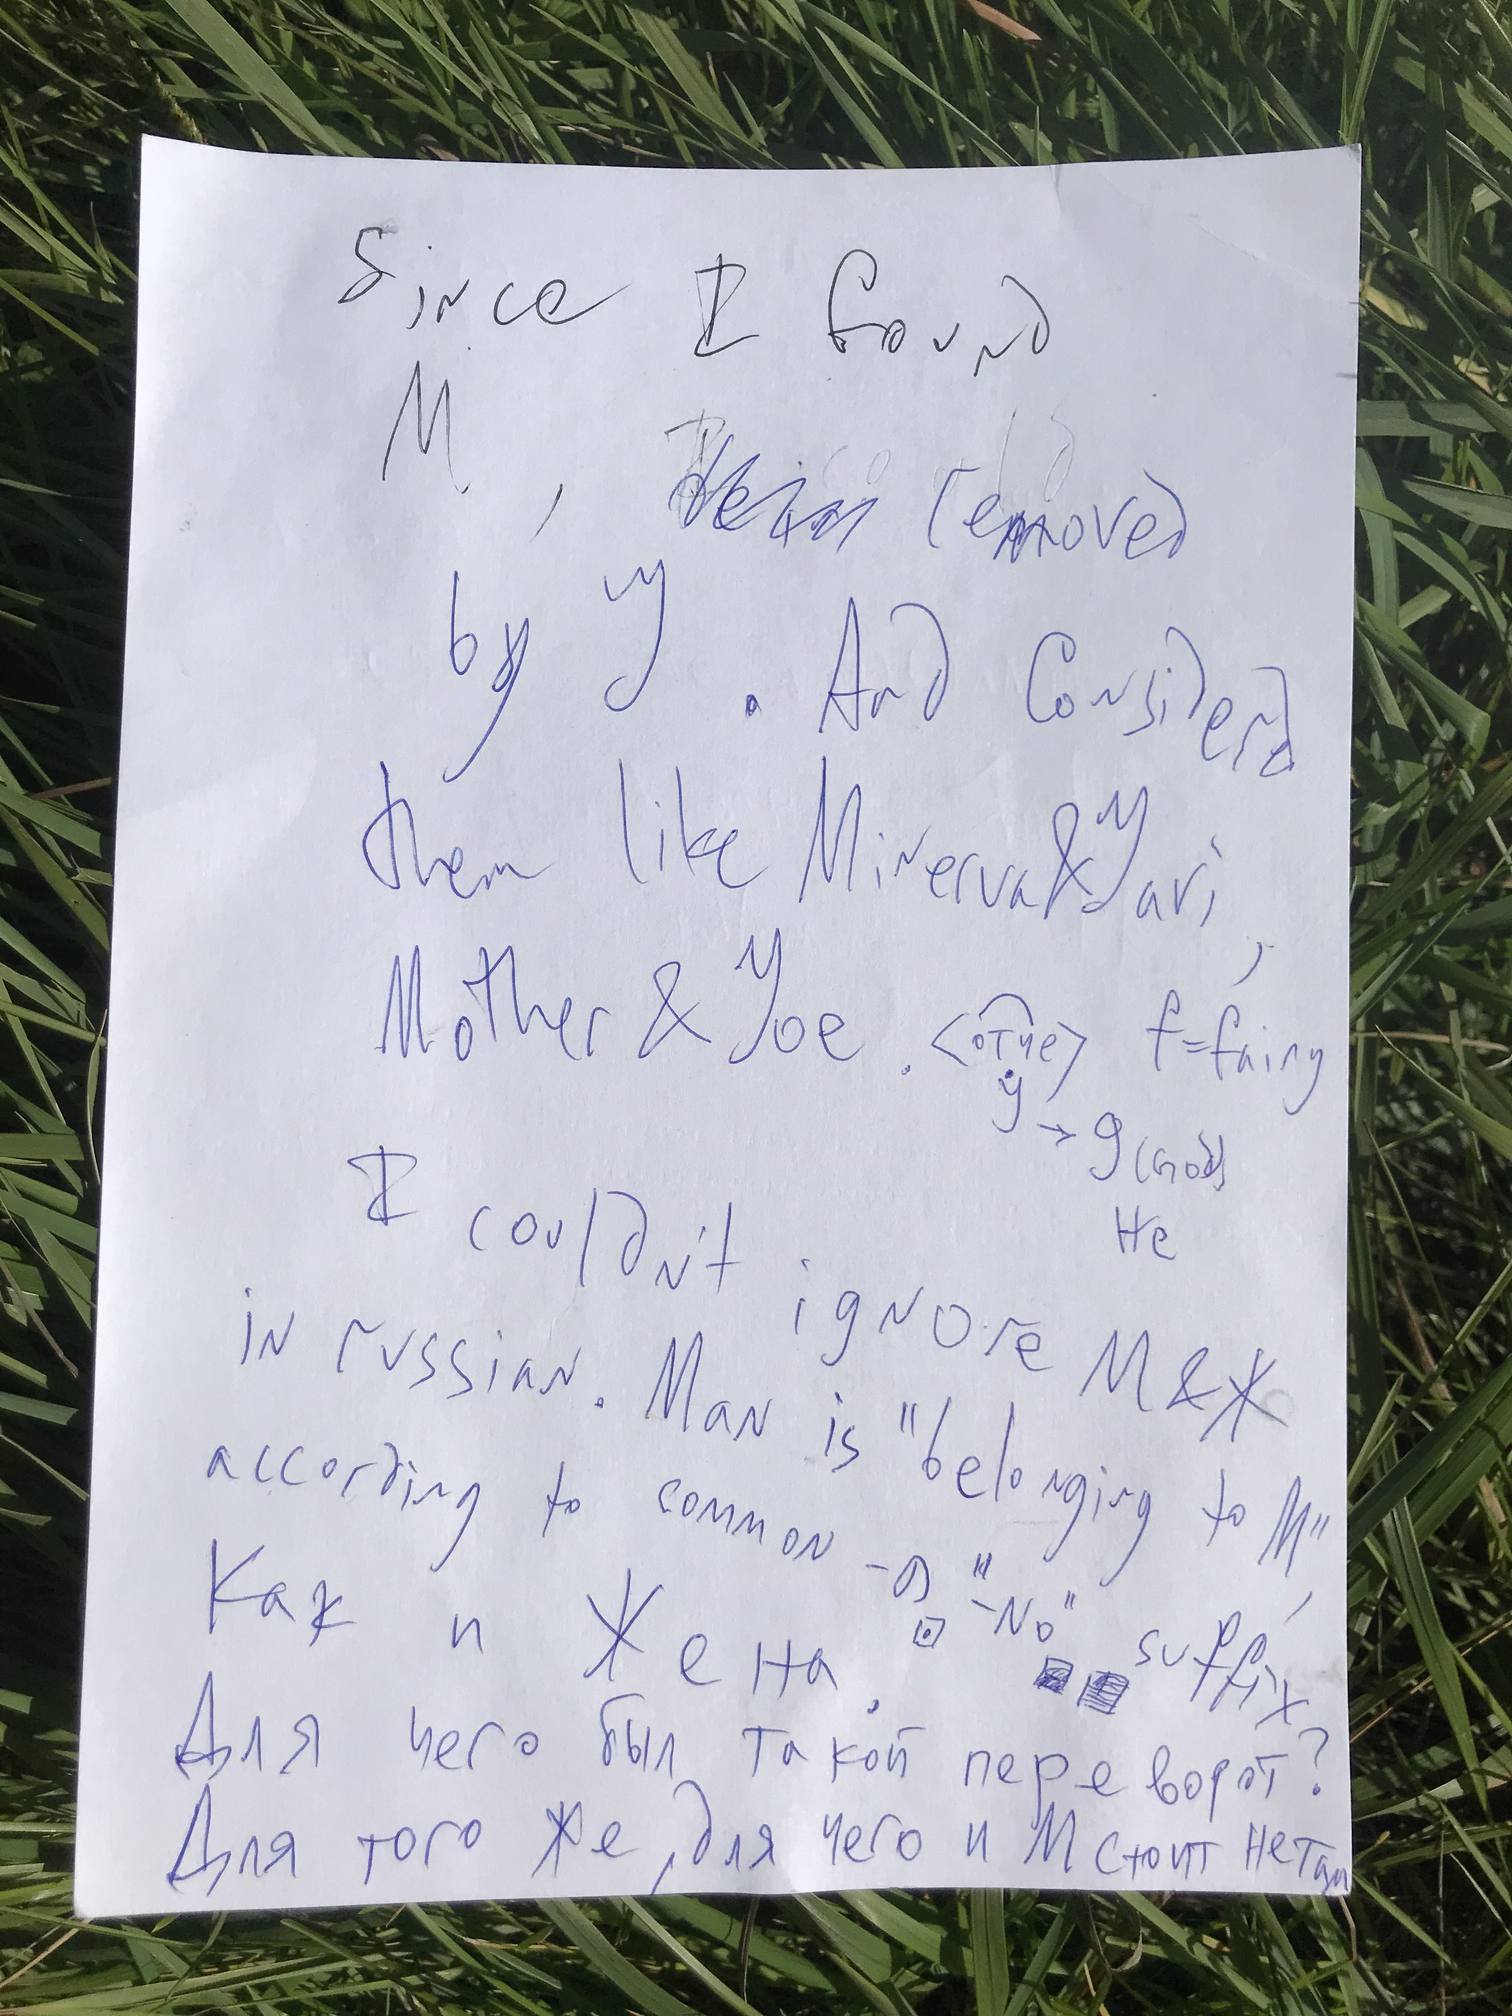 Since I found
M, removed
by y. And Considerd
them like Minerva & Yari,
Mother & Yoe. <отче> f=fairy
y → g (God)
Не
I couldn't ignore M & Ж
in russian. Man is "belonging to M",
according to common "-No" suffix
Как и Жена.
Для чего был такой переворот?
Для того же, для чего и M стоит не там